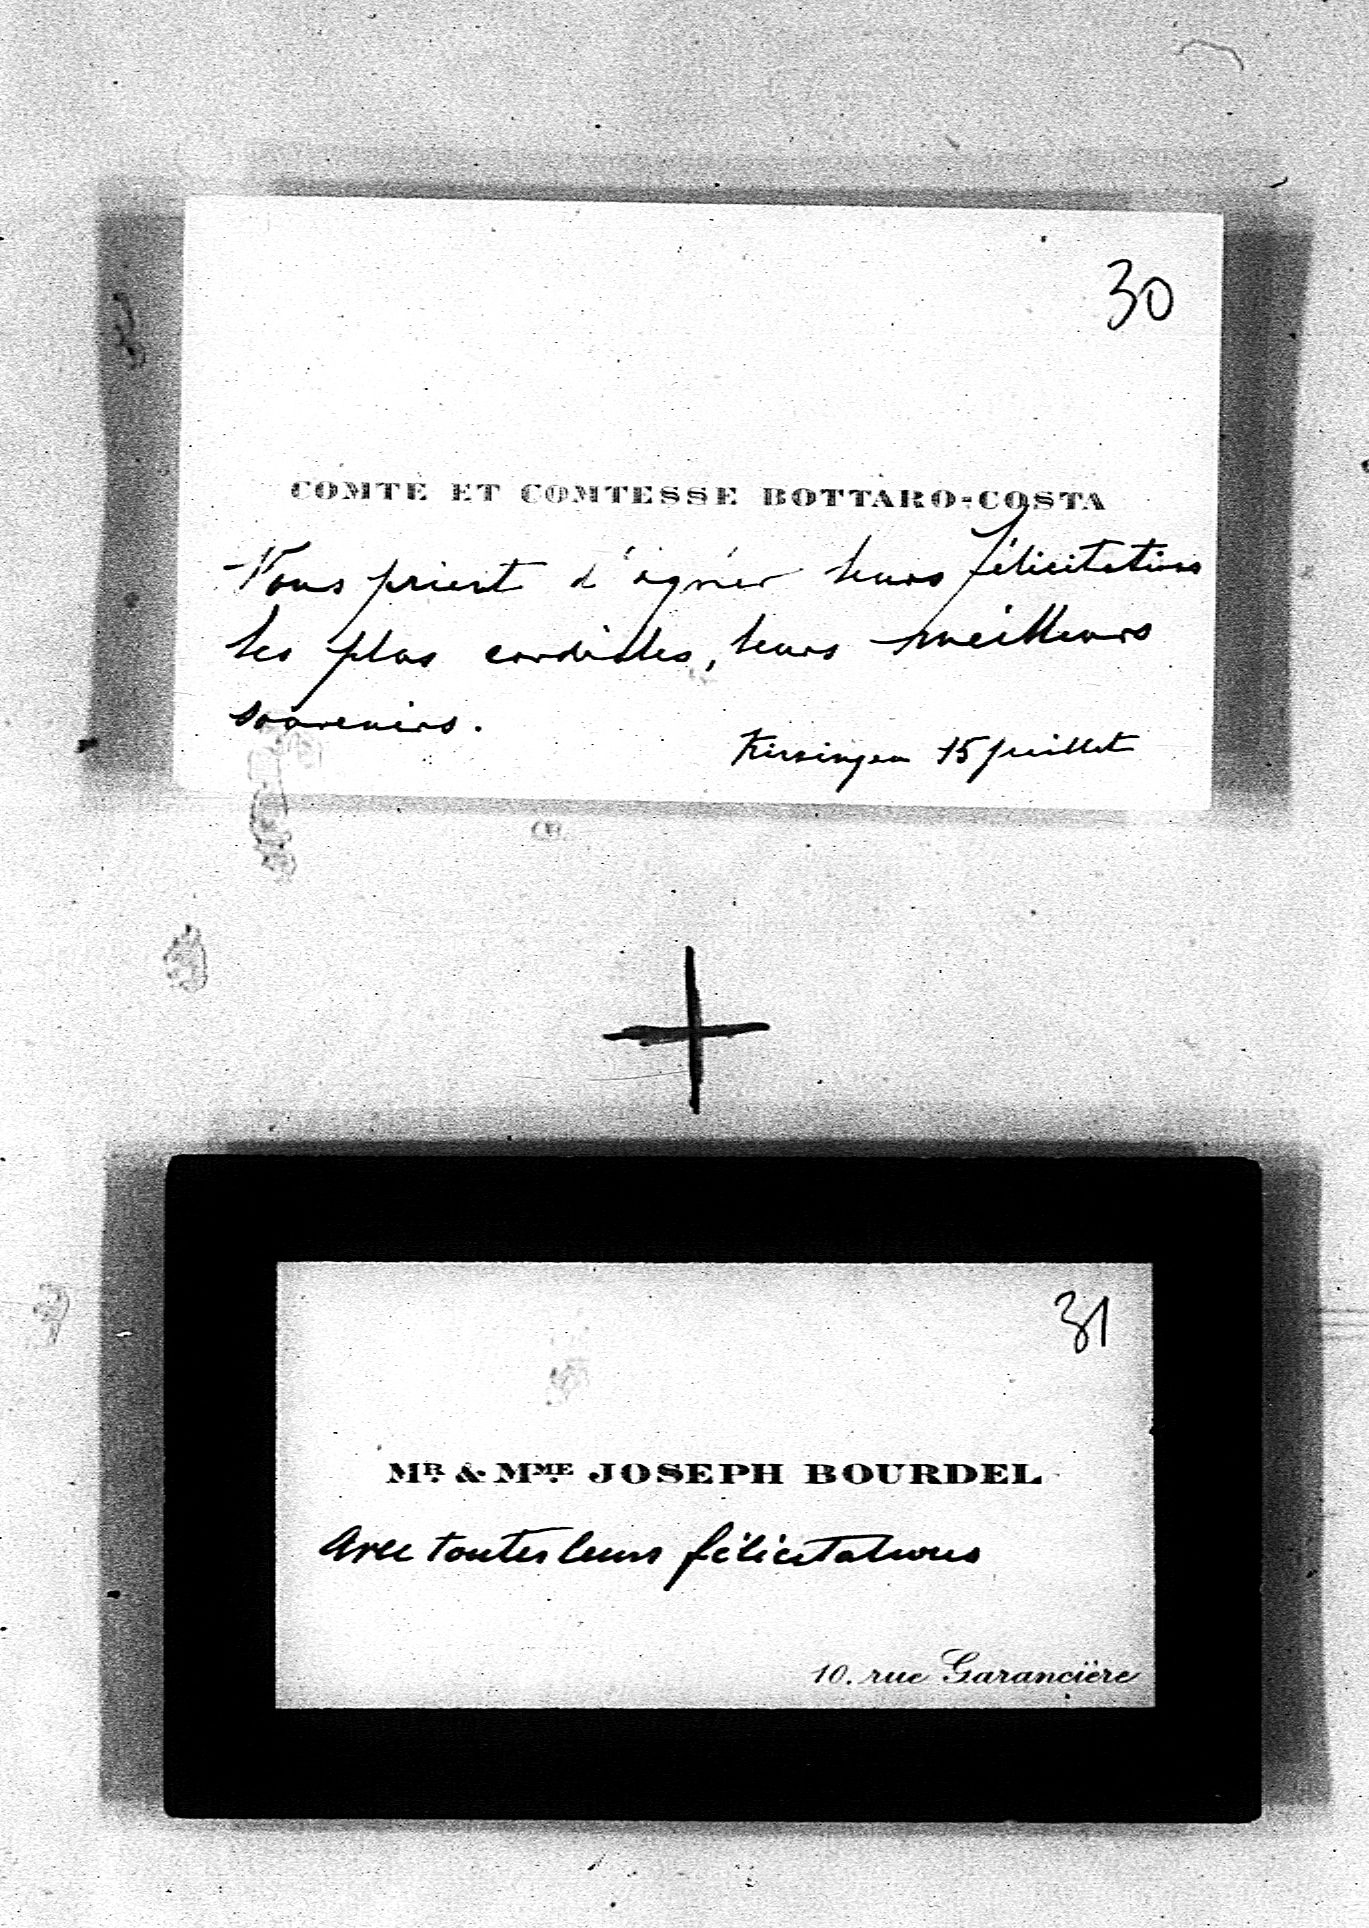 30
COMTE ET COMTESSE BOTTARO-COSTA
Vous prient d'agréer leurs félicitations
les plus cordiales, leurs meilleurs
souvenirs.
Kissingen 15 juillet
31
MR. & MME. JOSEPH BOURDEL
Avec toutes leurs félicitations
10. rue Garancière